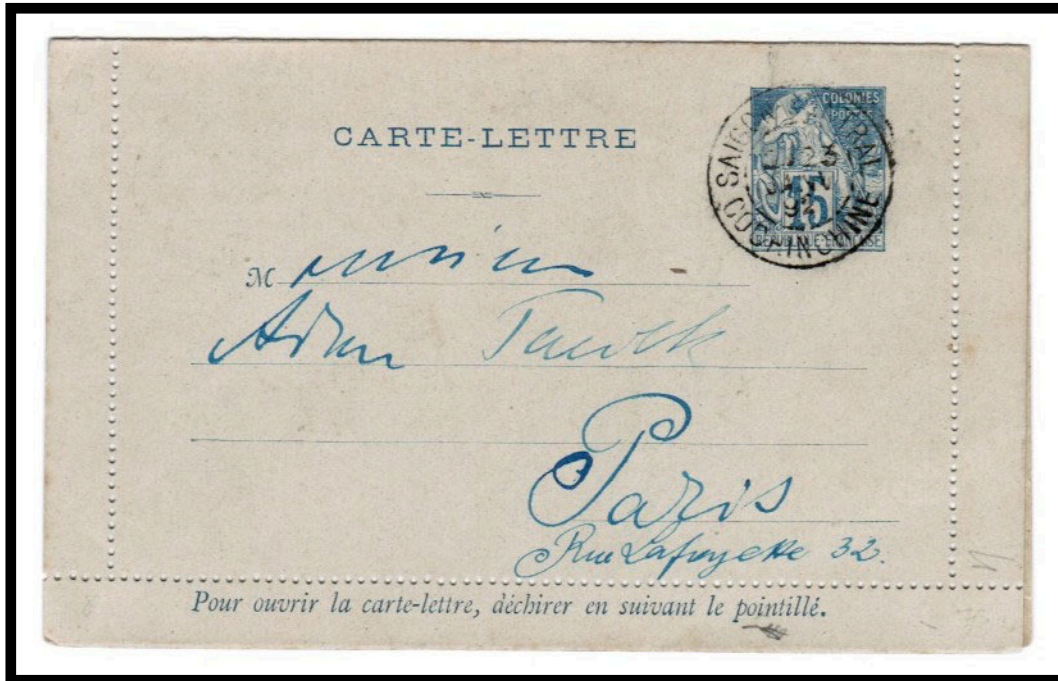 CARTE-LETTRE
COLONIES
POSTES
15
REPUBLIQUE FRANCAISE
SAIGON CENTRAL
23
92
COCHINCHINE
Monsieur
Adam
Paris
Rue Lafayette 32.
Pour ouvrir la carte-lettre, déchirer en suivant le pointillé.